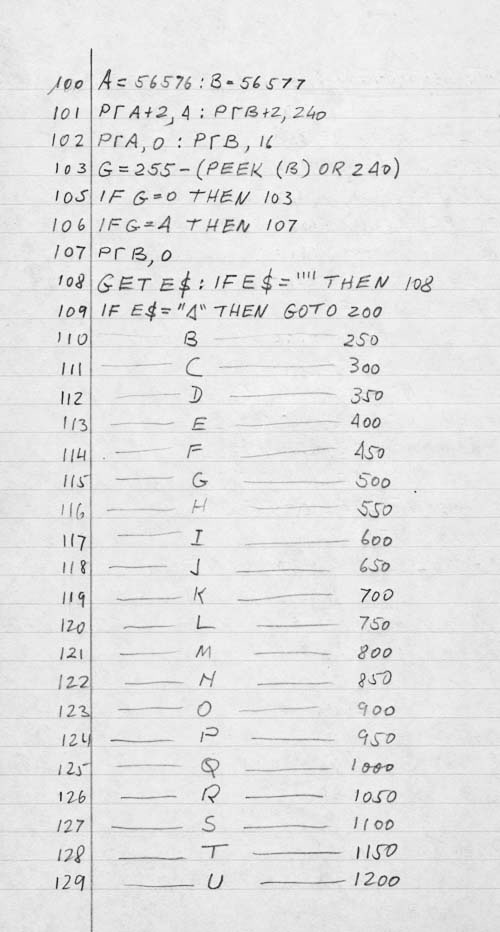 100 A=56576:B=56577
101 PΓA+2,4:PΓB+2,240
102 PΓA,0:PΓB,16
103 G=255-(PEEK (B) OR 240)
105 IF G=0 THEN 103
106 IF G=4 THEN 107
107 PΓB,0
108 GET E$:IF E$="" THEN 108
109 IF E$="A" THEN GOTO 200
110 —— B —— 250
111 —— C —— 300
112 —— D —— 350
113 —— E —— 400
114 —— F —— 450
115 —— G —— 500
116 —— H —— 550
117 —— I —— 600
118 —— J —— 650
119 —— K —— 700
120 —— L —— 750
121 —— M —— 800
122 —— N —— 850
123 —— O —— 900
124 —— P —— 950
125 —— Q —— 1000
126 —— R —— 1050
127 —— S —— 1100
128 —— T —— 1150
129 —— U —— 1200